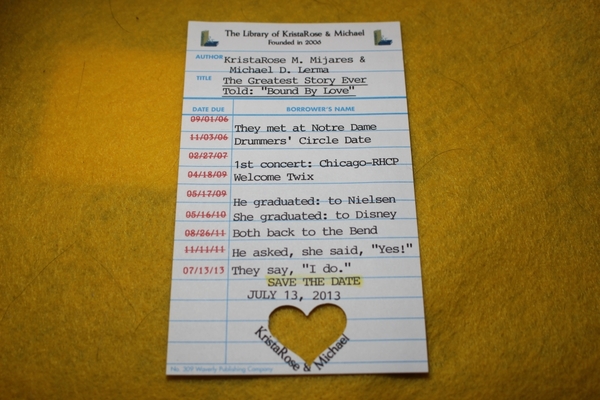 The Library of KristaRose & Michael
Founded in 2006
AUTHOR KristaRose M. Mijares &
Michael D. Lerma
TITLE The Greatest Story Ever
Told: "Bound By Love"
DATE DUE BORROWER'S NAME
09/01/06 They met at Notre Dame
11/03/06 Drummers' Circle Date
02/27/07 1st concert: Chicago-RHCP
04/18/09 Welcome Twix
05/17/09 He graduated: to Nielsen
05/16/10 She graduated: to Disney
08/26/11 Both back to the Bend
11/11/11 He asked, she said, "Yes!"
07/13/13 They say, "I do."
SAVE THE DATE
JULY 13, 2013
KristaRose & Michael
No. 309 Waverly Publishing Company